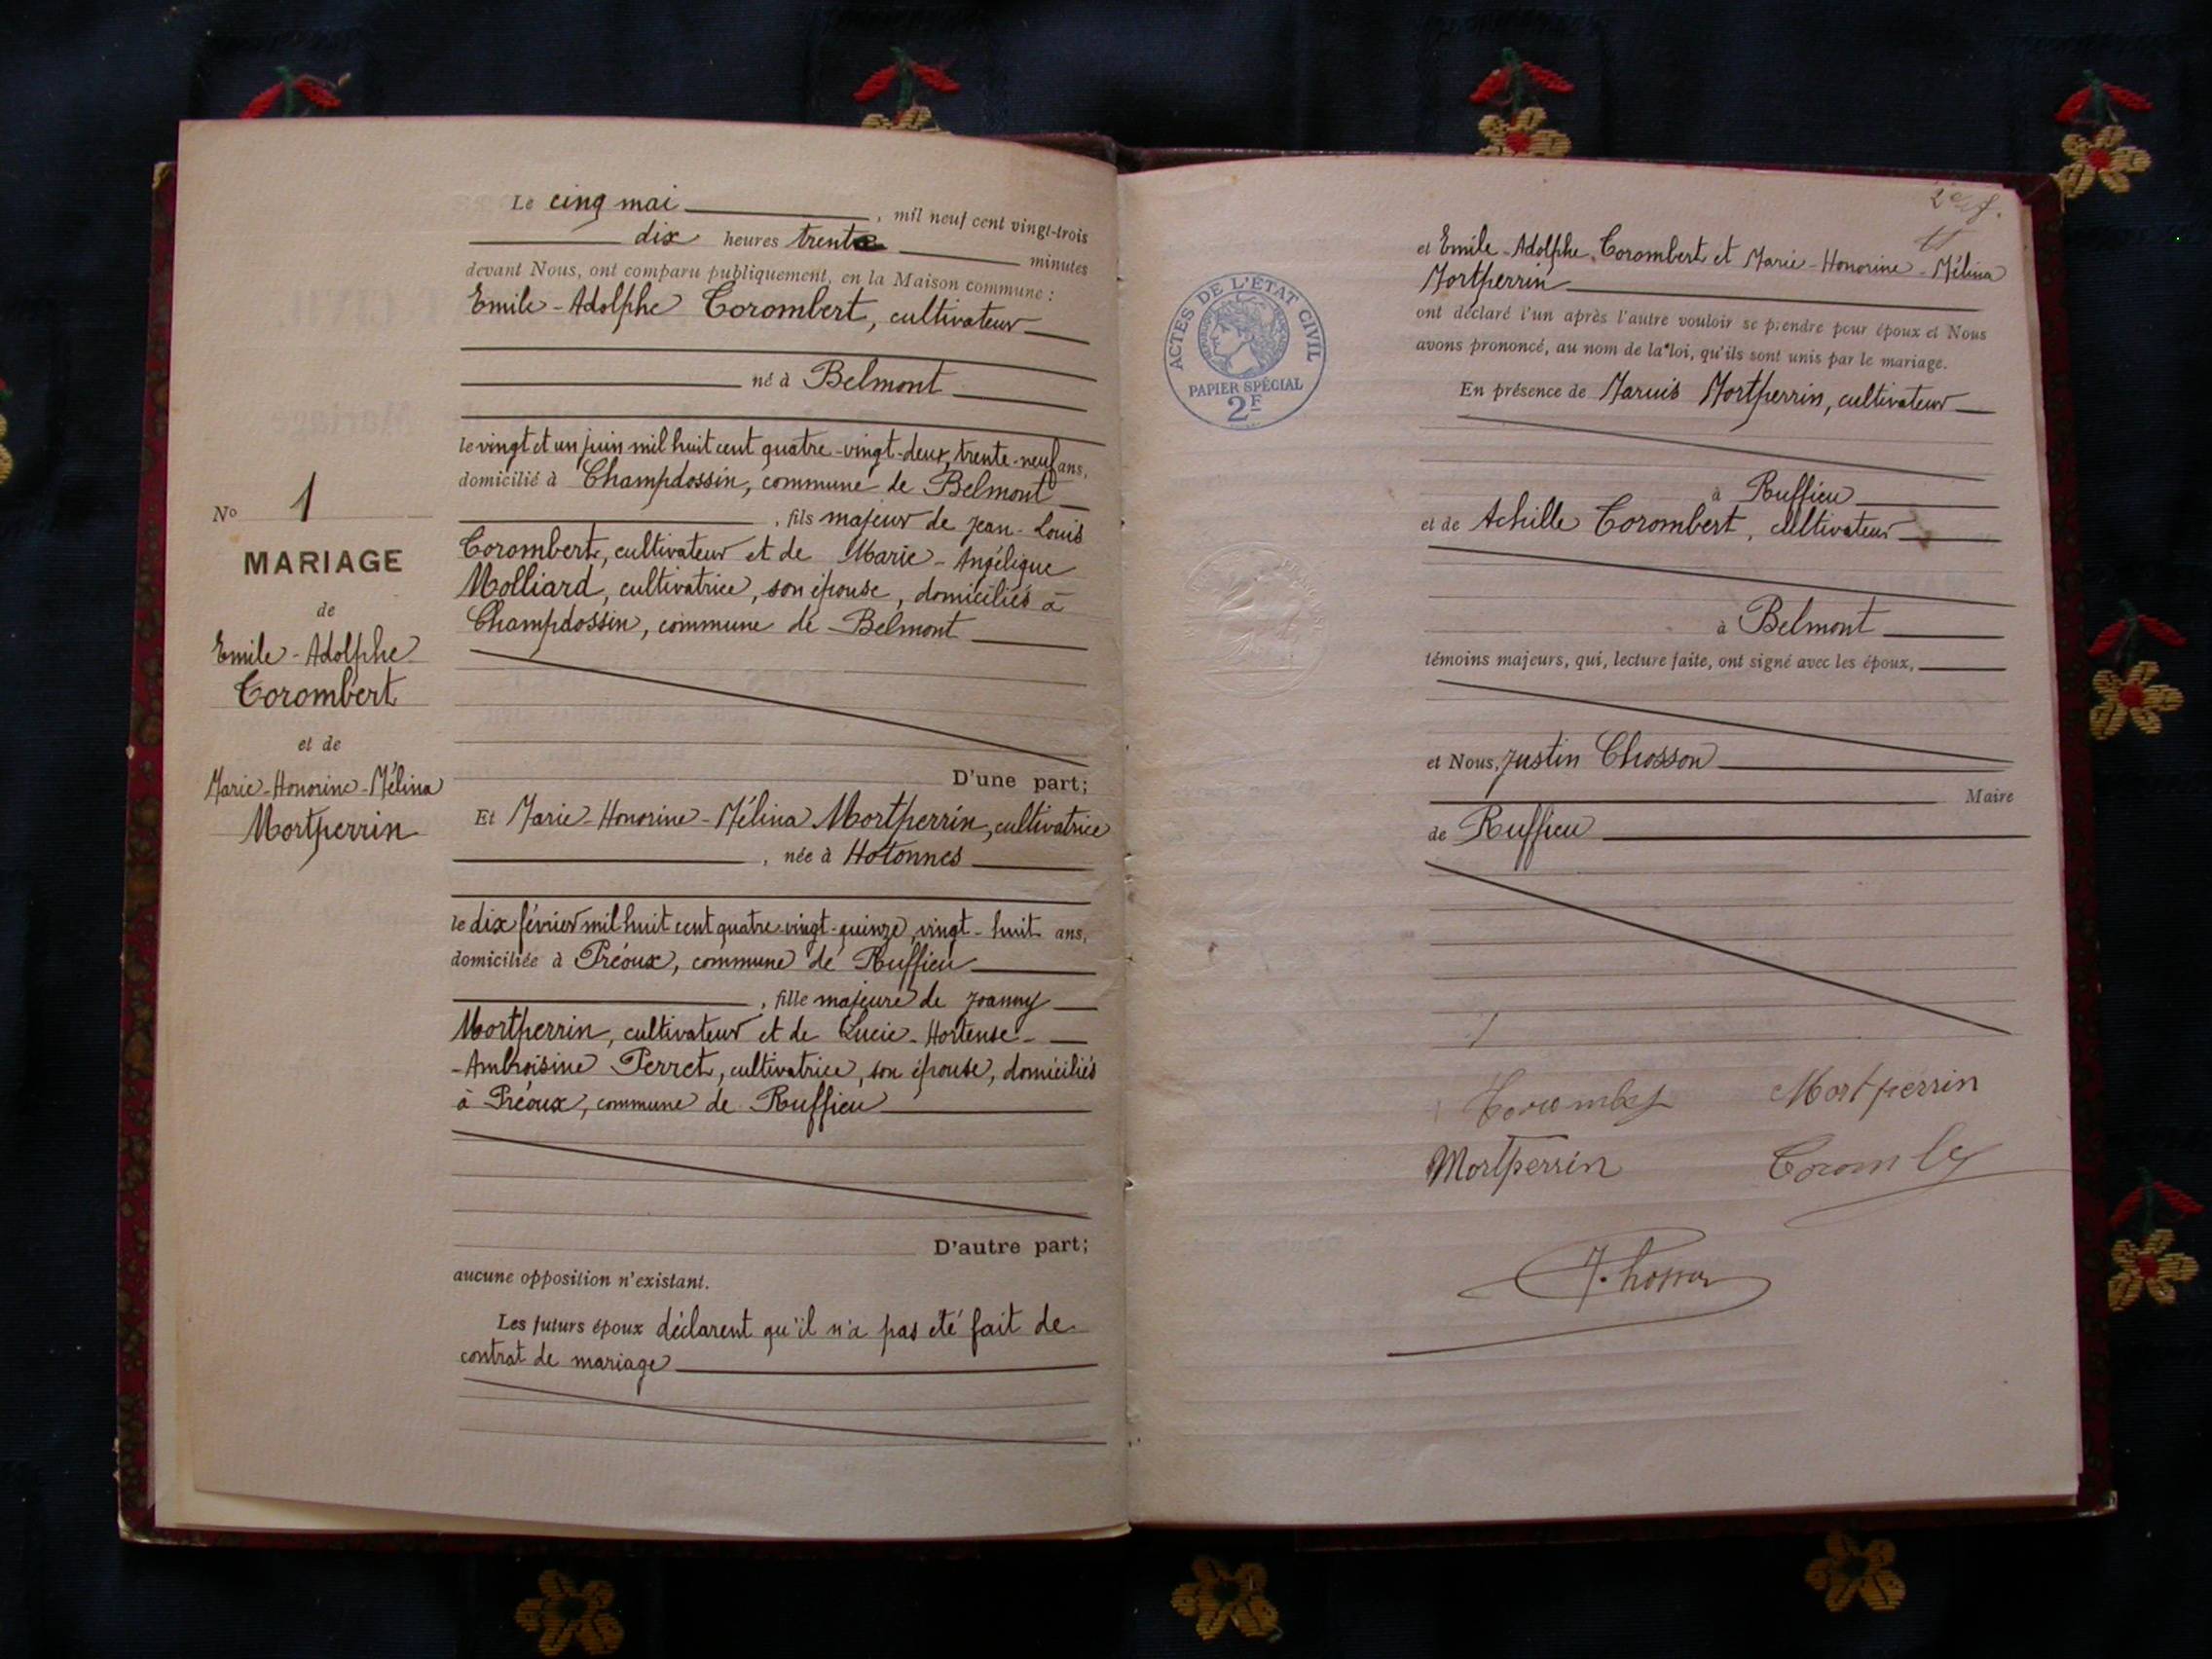 Le cinq mai, mil neuf cent vingt-trois
dix heures trente minutes
devant Nous, ont comparu publiquement, en la Maison commune :
Emile-Adolphe Corombert, cultivateur
né à Belmont
le vingt et un juin mil huit cent quatre-vingt-deux, trente-neuf ans,
domicilié à Champdossin, commune de Belmont
, fils majeur de Jean-Louis
Corombert, cultivateur et de Marie-Angélique
Molliard, cultivatrice, son épouse, domiciliés à
Champdossin, commune de Belmont
D'une part;
Et Marie-Honorine-Mélina Mortperrin, cultivatrice
, née à Hotonnes
le dix février mil huit cent quatre-vingt-quinze, vingt-huit ans,
domiciliée à Préoux, commune de Ruffieu
, fille majeure de Joanny
Mortperrin, cultivateur et de Lucie-Hortense-
-Ambroisine Perret, cultivatrice, son épouse, domiciliés
à Préoux, commune de Ruffieu
D'autre part;
aucune opposition n'existant.
Les futurs époux déclarent qu'il n'a pas été fait de
contrat de mariage
No 1
MARIAGE
de
Emile-Adolphe
Corombert
et de
Marie-Honorine-Mélina
Mortperrin
ACTES DE L'ÉTAT CIVIL
PAPIER SPÉCIAL
2F
et Emile-Adolphe Corombert et Marie-Honorine-Mélina
Mortperrin
ont déclaré l'un après l'autre vouloir se prendre pour époux et Nous
avons prononcé, au nom de la loi, qu'ils sont unis par le mariage.
En présence de Marius Mortperrin, cultivateur
à Ruffieu
et de Achille Corombert, cultivateur
à Belmont
témoins majeurs, qui, lecture faite, ont signé avec les époux,
et Nous, Justin Chosson
Maire
de Ruffieu
Corombert Mortperrin
Mortperrin Corombert